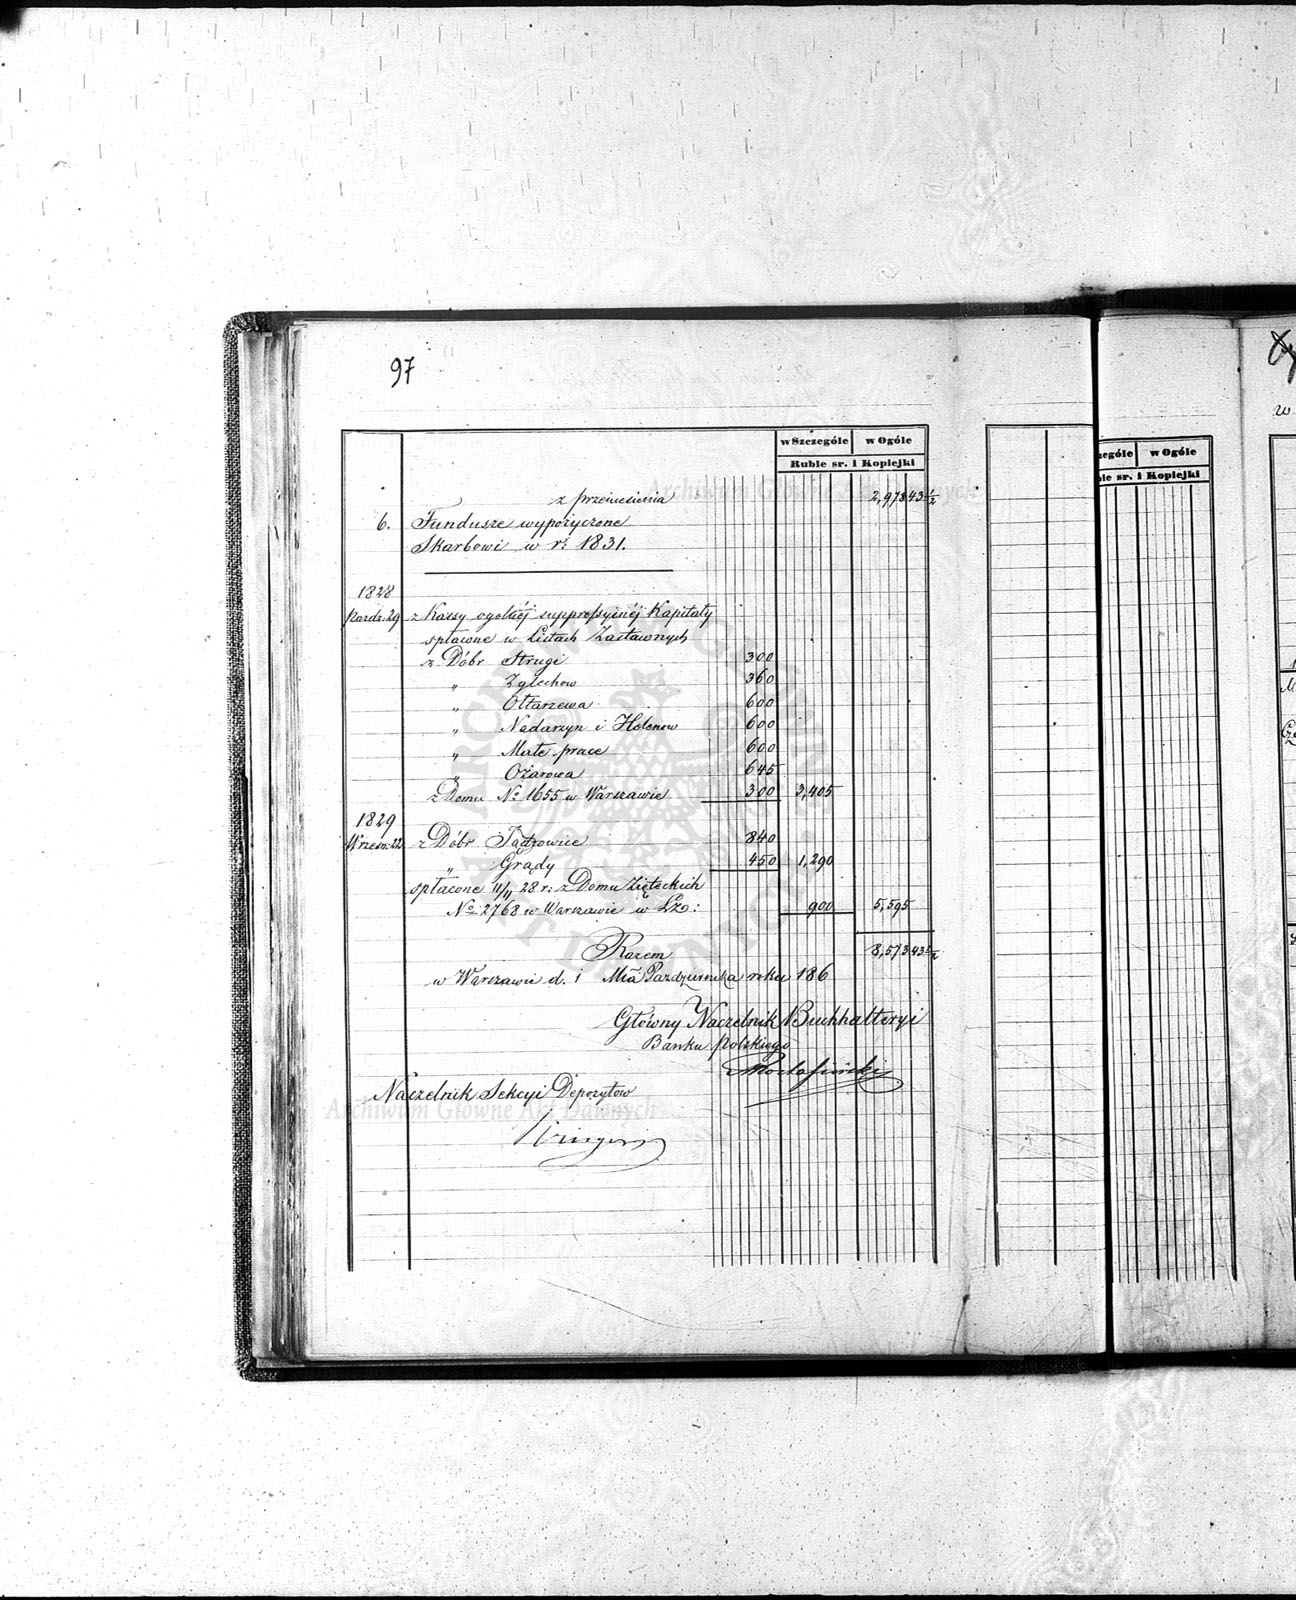 97
w Szczególe w Ogóle
Ruble sr. i Kopiejki
z przeniesienia 2,978 43 1/2
6. Fundusze wypożyczone
Skarbowi w r: 1831.
1828
Pazdz: 29 z Kassy ogólnéj suppressyjnéj Kapitały
spłacone w Listach Zastawnych
z Dóbr Strugi 300
" Zglechow 360
" Ołtarzewa 600
" Nadarzyn i Helenow 600
" Małe prace 600
" Ożarowa 645
z Domu No 1655 w Warszawie 300 3,405
1829
Wrześ: 22 z Dóbr Tądzowice 840
" Grądy 450 1,290
spłacone 11/11 28 r: z Domu Zięteckich
No 2768 w Warszawie w Lzo: 900 5,595
Razem 8,573 43 1/2
w Warszawie d. 1 Mca Pazdziernika roku 186
Główny Naczelnik Buchhalteryi
Banku Polskiego
Naczelnik Sekcyi Depozytow
zególe w Ogóle
ble sr. i Kopiejki
w
Archiwum Główne Akt Dawnych
Archiwum Główne Akt Dawnych
ARCHIWUM GŁÓWNE AKT DAWNYCH